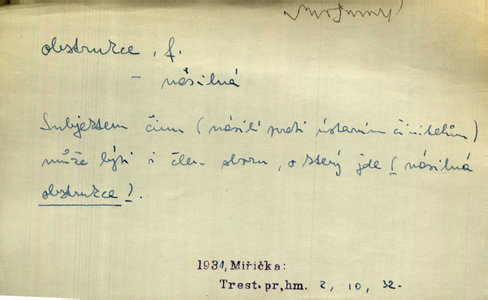 obstrukce, f.
– násilná
Subjektem činu (násilí proti ústavním činitelům)
může býti i člen sboru, o který jde (násilná
obstrukce).
1931, Miřička:
Trest. pr. hm. 2, 10, 32.